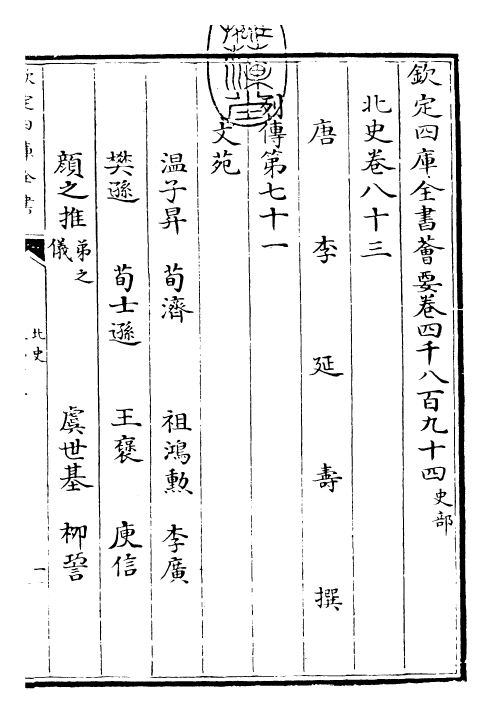 欽定四庫全書薈要卷四千八百九十四 史部
北史卷八十三
唐 李 延 壽 撰
列傳第七十一
文苑
温子昇 荀濟 祖鴻勲 李廣
樊遜 荀士遜 王襃 庾信
顔之推 弟之儀 虞世基 柳䛒
欽定四庫全書
北史
一